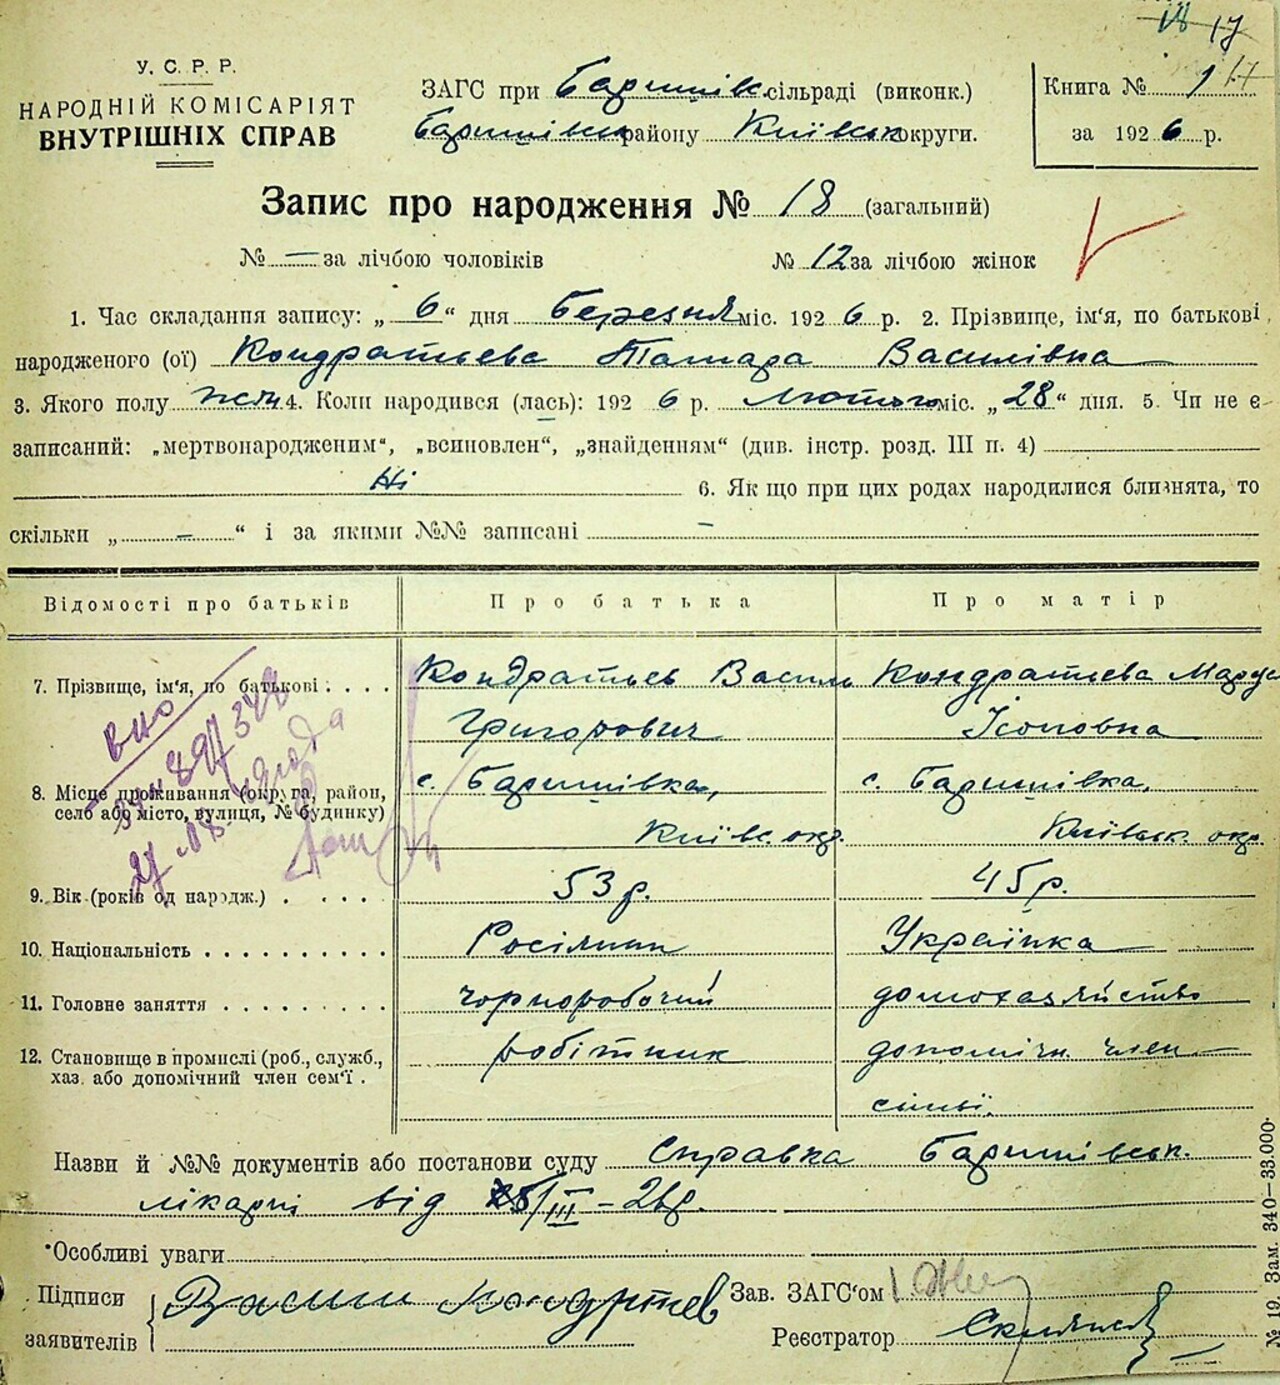 18 17
У. С. Р. Р.
НАРОДНІЙ КОМІСАРІЯТ
ВНУТРІШНІХ СПРАВ
ЗАГС при Баришівк. сільраді (виконк.)
Баришівськ району Київськ округи.
Книга № 1
за 1926 р.
Запис про народження № 18 (загальний)
№ — за лічбою чоловіків № 12 за лічбою жінок
1. Час складання запису: „ 6 “ дня березня міс. 1926 р. 2. Прізвище, ім'я, по батькові
народженого (ої) Кондратьєва Тамара Василівна
3. Якого полу жін. 4. Коли народився (лась): 1926 р. лютого міс. „28“ дня. 5. Чи не є
записаний: „мертвонародженим“, „всиновлен“, „знайденням“ (див. інстр. розд. III п. 4)
Ні 6. Як що при цих родах народилися близнята, то
скільки „ — “ і за якими №№ записані —
Відомості про батьків Про батька Про матір
7. Прізвище, ім'я, по батькові . . . . Кондратьєв Василь Кондратьєва Марус
Григорович Ісоповна
8. Місце проживання (округа, район, с. Баришівка, с. Баришівка,
село або місто, вулиця, № будинку) Київс. окр. Київськ. окр.
9. Вік (років од народж.) . . . . . 53 р. 45 р.
10. Національність . . . . . . . . . . Росіянин Українка
11. Головне заняття . . . . . . . . . чорноробочий домохазяйство
12. Становище в промислі (роб., служб., робітник допоміжн. член
хаз. або допомічний член сем'ї . сімьї.
Назви й №№ документів або постанови суду Справка Баришівськ.
лікарні від /III – 26р.
Особливі уваги
Підписи Василь Зав. ЗАГС'ом
заявителів Реєстратор
№ 19. Зам. 340—33.000.